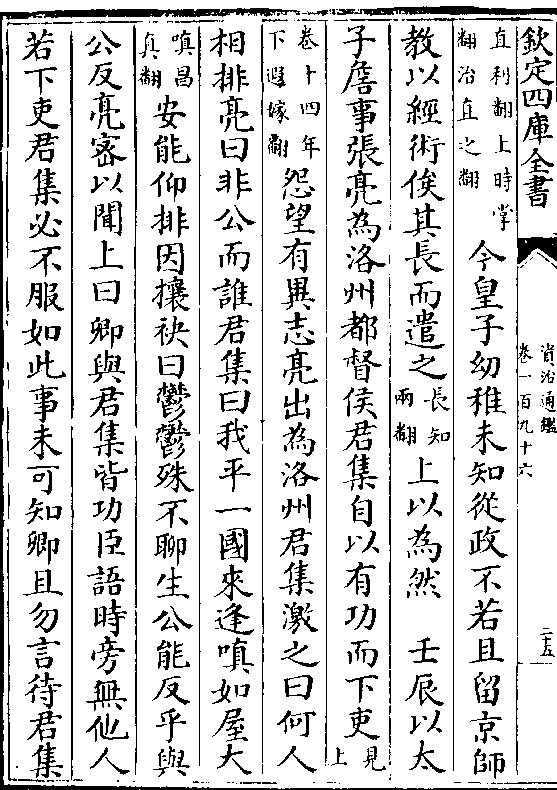 欽定四庫全書
資治通鑑
卷一百九十六
直利翻上時掌
翻治直之翻
今皇子幼稚未知從政不若且留京師
教以經術俟其長而遣之
長知
兩翻
上以為然　壬辰以太
子詹事張亮為洛州都督侯君集自以有功而下吏
見
上
卷十四年
下遐嫁翻
怨望有異志亮出為洛州君集激之曰何人
相排亮曰非公而誰君集曰我平一國來逢嗔如屋大
嗔昌
真翻
安能仰排因攘袂曰鬱鬱殊不聊生公能反乎與
公反亮密以聞上曰卿與君集皆功臣語時旁無他人
若下吏君集必不服如此事未可知卿且勿言待君集